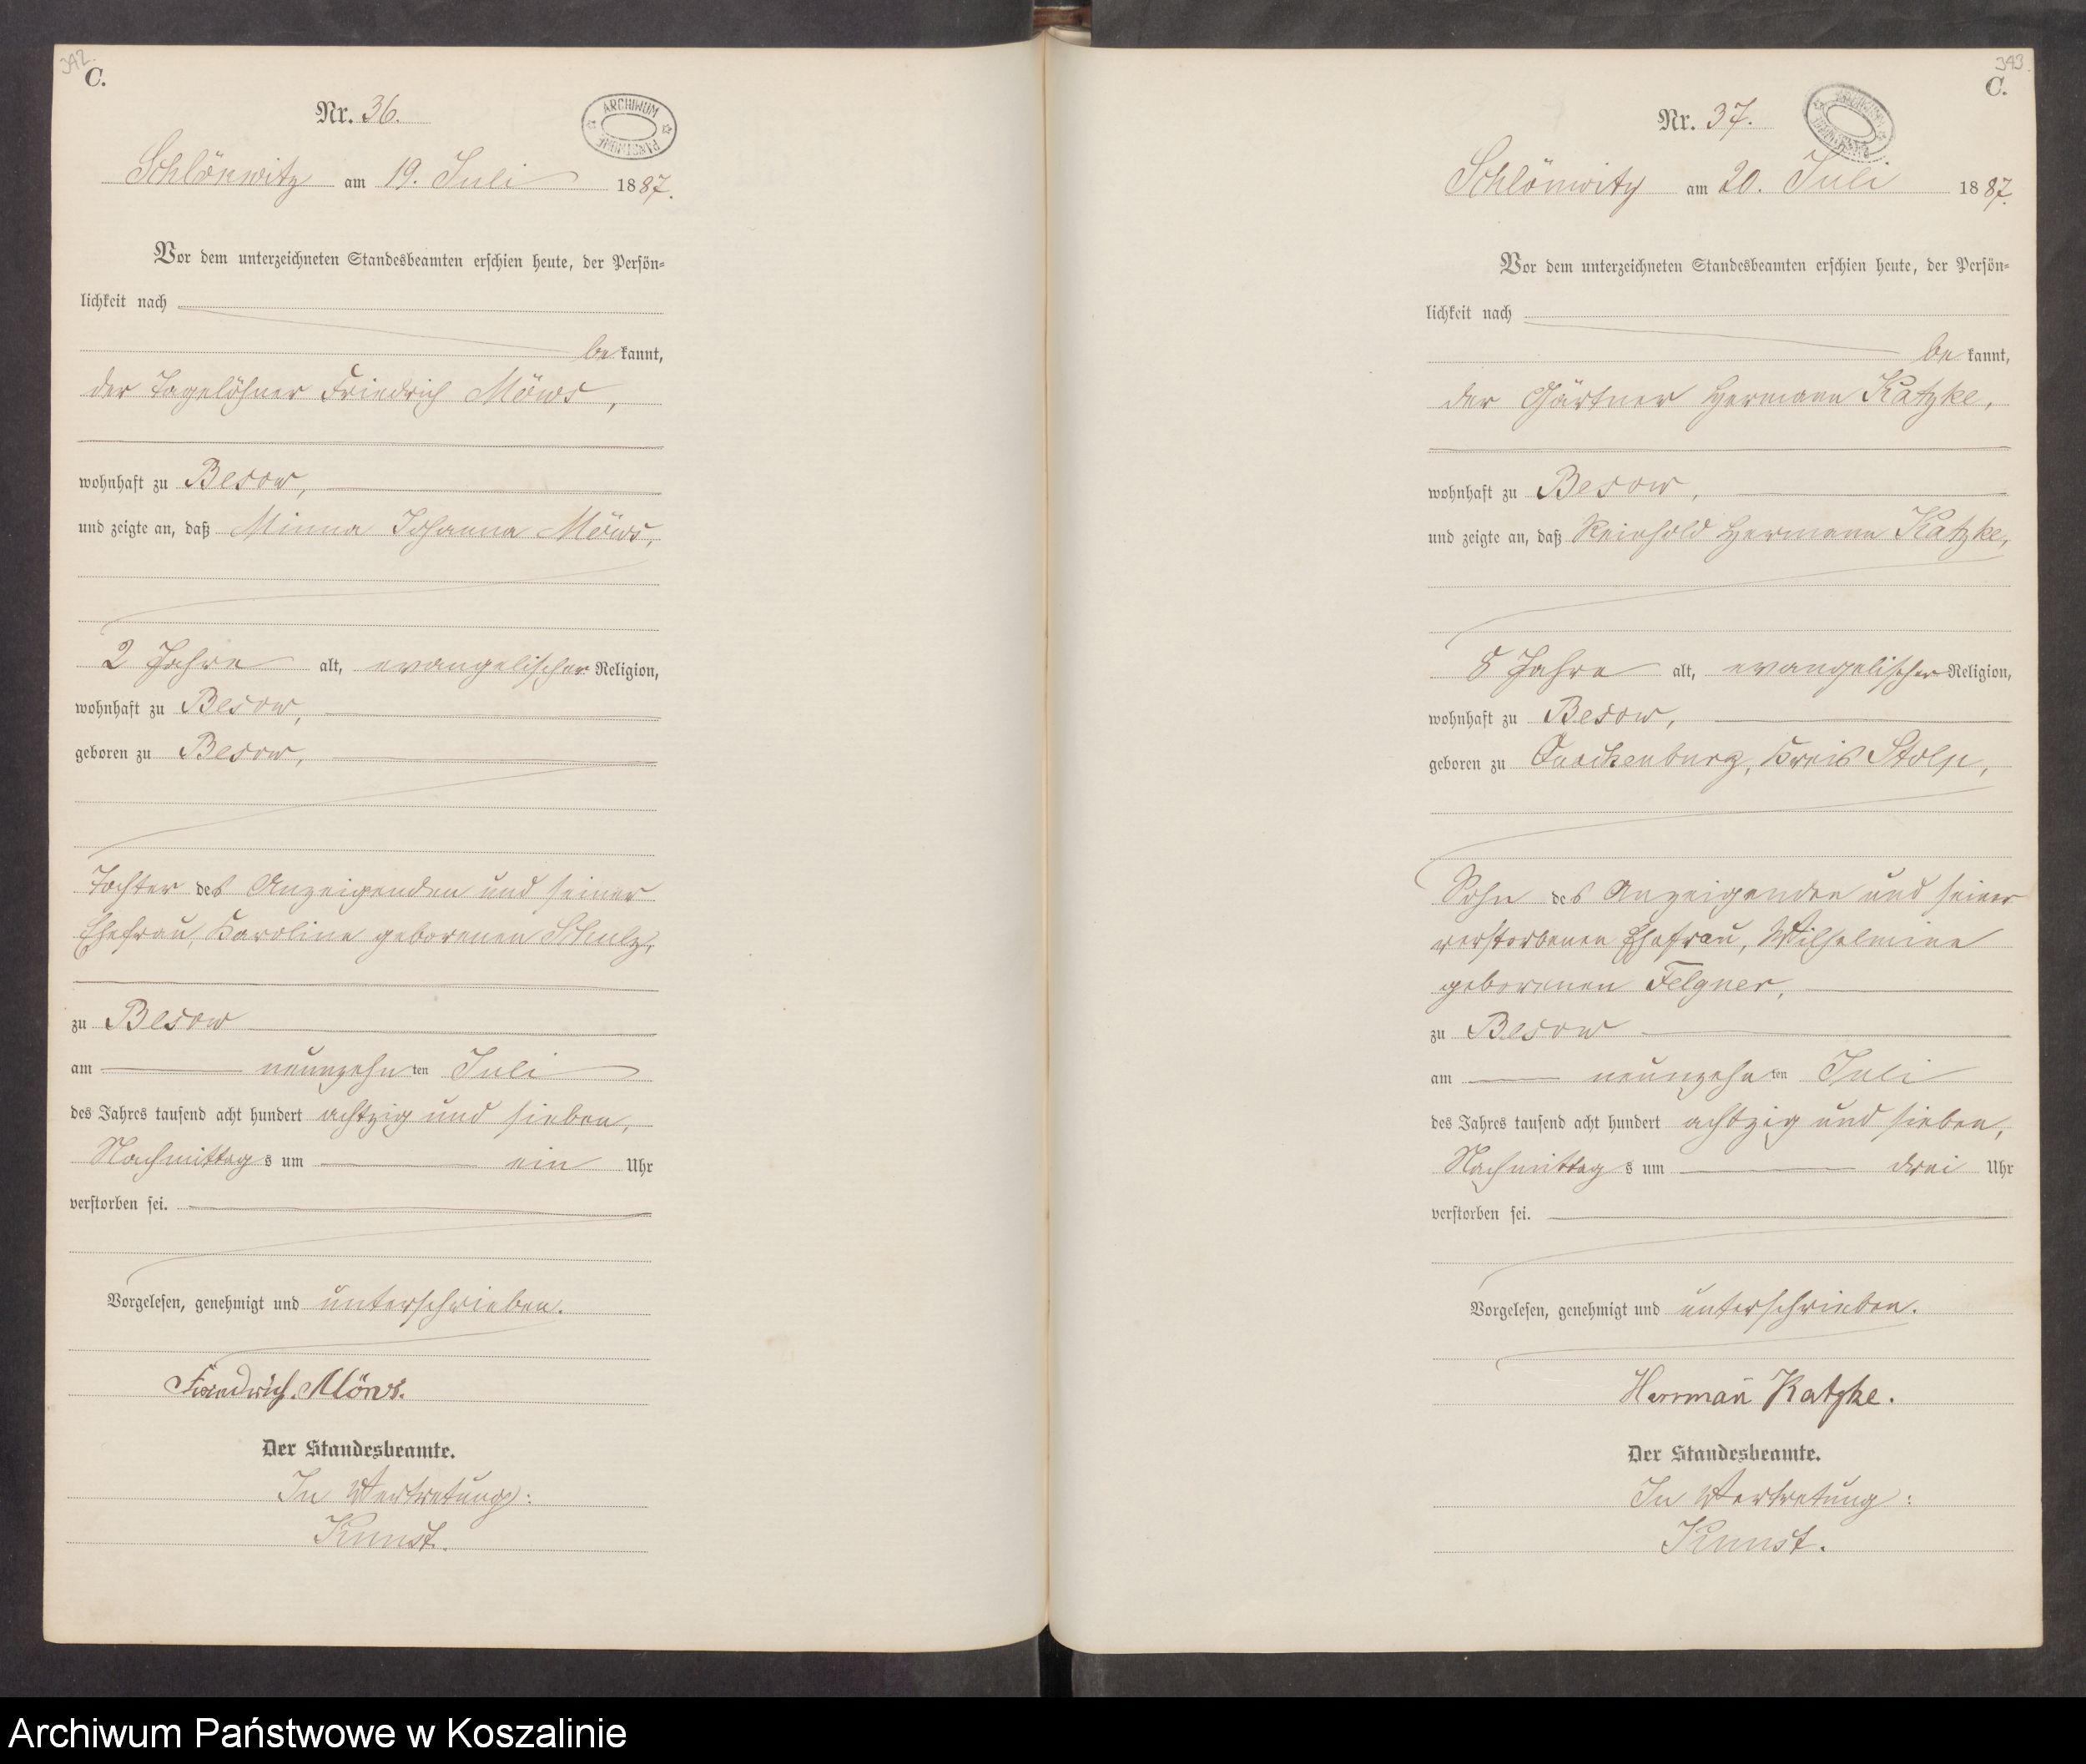 392.
C.
Nr. 36.
ARCHIWUM PAŃSTWOWE
Schlönwitz am 19. Juli 1887.
Vor dem unterzeichneten Standesbeamten erschien heute, der Persön-
lichkeit nach
be kannt,
der Tagelöhner Friedrich Möws,
wohnhaft zu Besow,
und zeigte an, daß Minna Johanna Möws,
2 Jahre alt, evangelischer Religion,
wohnhaft zu Besow,
geboren zu Besow,
Tochter des Anzeigenden und seiner
Ehefrau, Karoline geborenen Schulz,
zu Besow
am neunzehnten Juli
des Jahres tausend acht hundert achtzig und sieben,
Nachmittags um ein Uhr
verstorben sei.
Vorgelesen, genehmigt und unterschrieben.
Friedrich Möws.
Der Standesbeamte.
In Vertretung:
Kunst.
393.
C.
Nr. 37.
Schlönwitz am 20. Juli 1887.
Vor dem unterzeichneten Standesbeamten erschien heute, der Persön-
lichkeit nach
be kannt,
der Gärtner Hermann Katzke,
wohnhaft zu Besow,
und zeigte an, daß Reinhold Hermann Katzke,
8 Jahre alt, evangelischer Religion,
wohnhaft zu Besow,
geboren zu Quackenburg, Kreis Stolp,
Sohn des Anzeigenden und seiner
verstorbenen Ehefrau, Wilhelmine
geborenen Felgner,
zu Besow
am neunzehnten Juli
des Jahres tausend acht hundert achtzig und sieben,
Nachmittags um drei Uhr
verstorben sei.
Vorgelesen, genehmigt und unterschrieben.
Herrman̄ Katzke.
Der Standesbeamte.
In Vertretung:
Kunst.
Archiwum Państwowe w Koszalinie